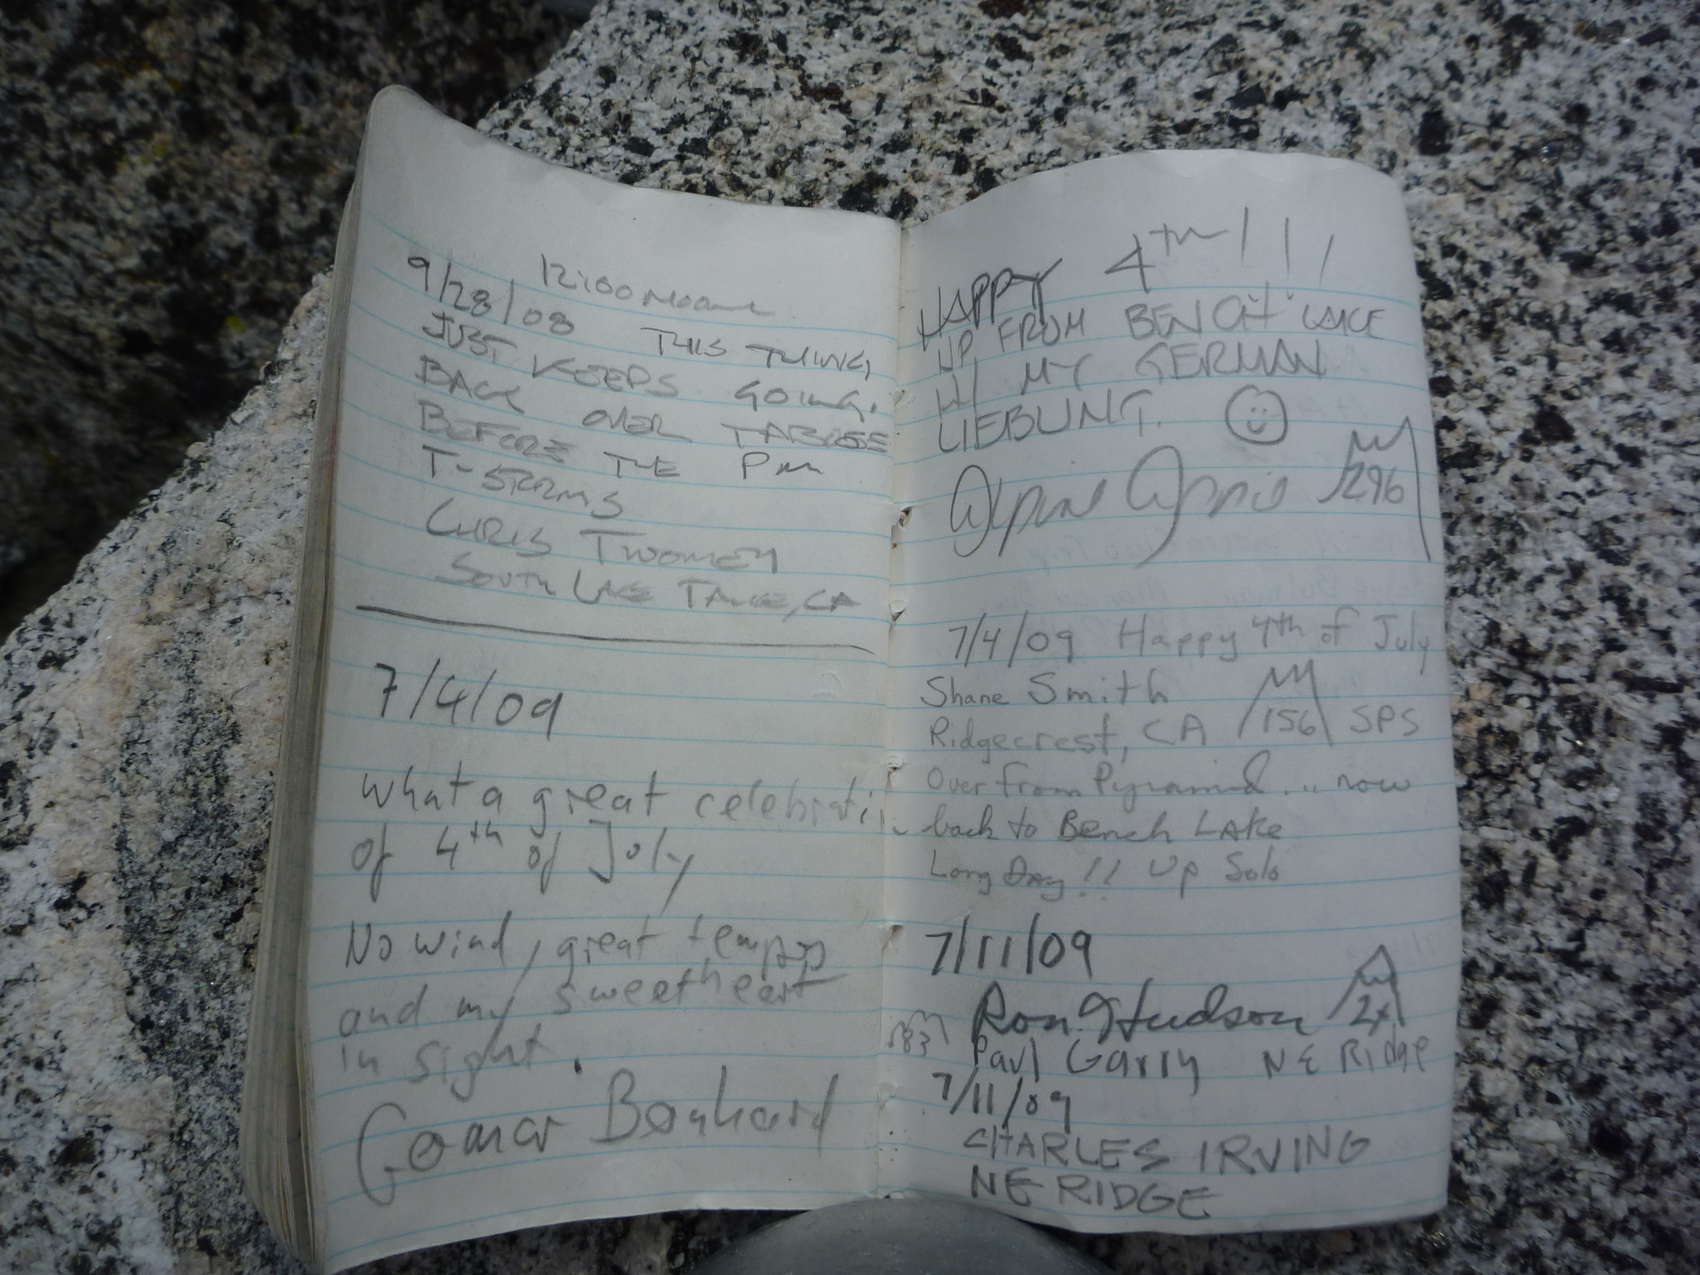 12:00 NOON
9/28/08 THIS THING
JUST KEEPS GOING.
BACK OVER TABOOSE
BEFORE THE PM
T-STRMS
CHRIS TWOMEY
SOUTH LAKE TAHOE, CA
7/4/09
What a great celebration
of 4th of July
No wind, great temps
and my sweetheart
in sight.
Bernhard
HAPPY 4TH!!!
UP FROM BENCH LAKE
W/ MY GERMAN
LIEBLING.
296
7/4/09 Happy 4th of July
Shane Smith
Ridgecrest, CA 156 SPS
Over from Pyramid... now
back to Bench LAke
Long DAy!! Up Solo
7/11/09
Ron Hudson 2x
Paul Garry NE Ridge
7/11/09
CHARLES IRVING
NE RIDGE